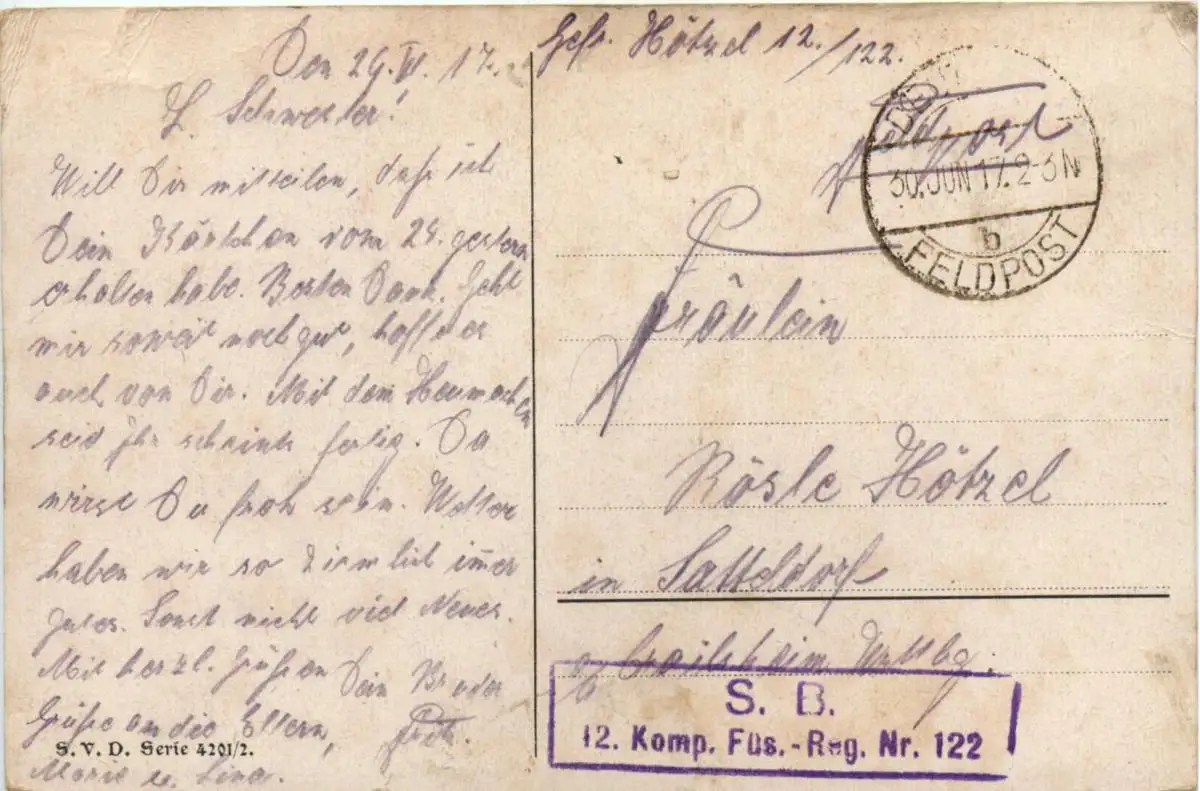 Den 29.VI.17.
L. Schwester!
Will Dir mitteilen, daß ich
Dein Kärtchen vom 24. gestern
erhalten habe. Besten Dank. Geht
mir soweit noch gut, hoffe es
auch von Dir. Mit dem Heumachen
seid Ihr scheints fertig. Da
wirst Du froh sein. Wetter
haben wir so ziemlich immer
gutes. Sonst nicht viel Neues.
Mit herzl. Grüßen Dein Bruder
Grüße an die Eltern,
Marie u. Lina.
S. V. D. Serie 4201/2.
Gefr. Hötzel 12./122.
Feldpost
30.JUN 17. 2-3N
b
FELDPOST
Fräulein
Rösle Hötzel
in Satteldorf
Crailsheim Wttbg.
S. B.
12. Komp. Füs.-Reg. Nr. 122